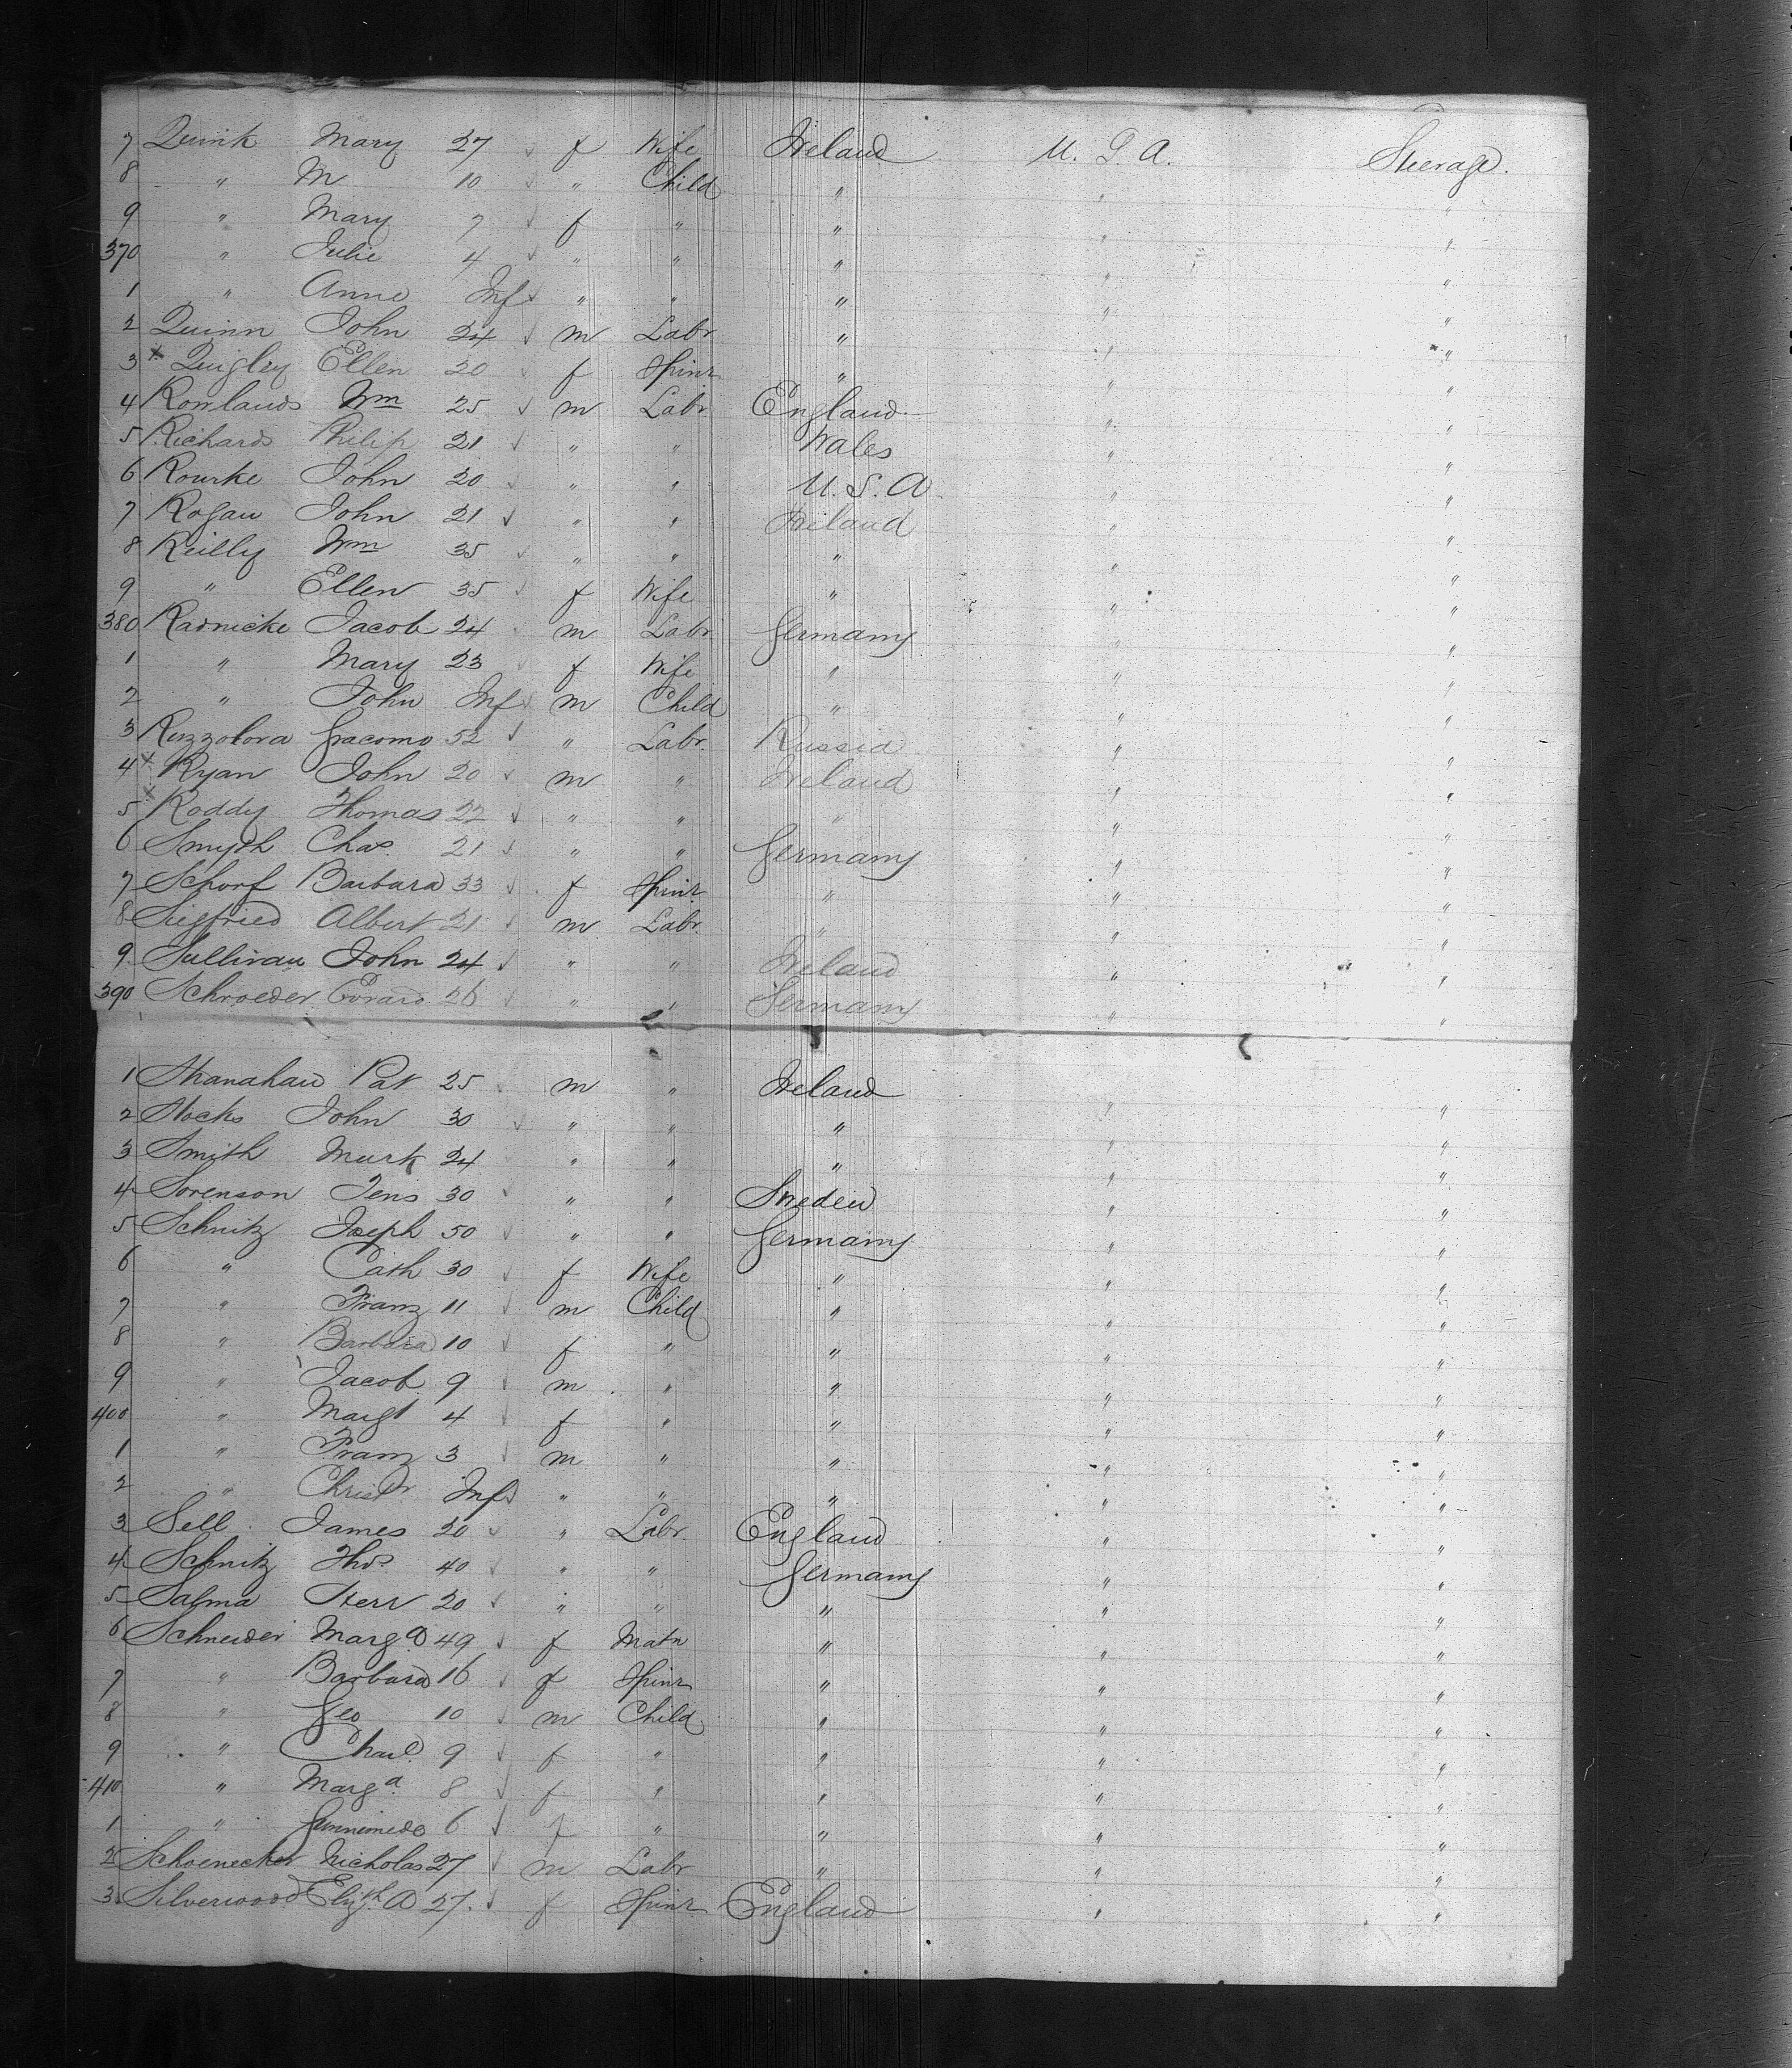 7 Quirk Mary 27 ✓ f Wife Ireland U. S. A. Steerage.
8 " M 10 ✓ " Child " " "
9 " Mary 7 ✓ f " " " "
370 " Julie 4 ✓ " " " " "
1 " Anne Inf ✓ " " " " "
2 Quinn John 24 ✓ m Labr " " "
3 x Quigley Ellen 20 ✓ f Spinr " " "
4 Rowlands Wm 25 ✓ m Labr England " "
5 Richards Philip 21 ✓ " " Wales " "
6 Rourke John 20 ✓ " " U. S. A. " "
7 Rogan John 21 ✓ " " Ireland " "
8 Reilly Wm 35 ✓ " " " " "
9 " Ellen 35 ✓ f Wife " " "
380 Radnicke Jacob 24 ✓ m Labr Germany " "
1 " Mary 23 ✓ f Wife " " "
2 " John Inf ✓ m Child " " "
3 Ruzzolova Giacomo 52 ✓ " Labr. Russia " "
4 x Ryan John 20 ✓ m " Ireland " "
5 x Roddy Thomas 22 ✓ " " " " "
6 Smyth Chas. 21 ✓ " " Germany " "
7 Schorf Barbara 33 ✓ f Spinr. " " "
8 Siegfried Albert 21 ✓ m Labr. " " "
9 Sullivan John 24 ✓ " " Ireland " "
390 Schroeder Evard 26 ✓ " " Germany " "
1 Shanahan Pat 25 ✓ m " Ireland " "
2 Stocks John 30 ✓ " " " " "
3 Smith Murk 24 " " " " "
4 Sorenson Jens 30 ✓ " " Sweden " "
5 Schnitz Joseph 50 ✓ " " Germany " "
6 " Cath 30 ✓ f Wife " " "
7 " Franz 11 ✓ m Child " " "
8 " Barbara 10 ✓ f " " " "
9 " Jacob 9 ✓ m " " " "
400 " Margt 4 ✓ f " " " "
1 " Franz 3 ✓ m " " " "
2 " Christr Inf ✓ " " " " "
3 Sell James 20 ✓ " Labr. England " "
4 Schnitz Thos 40 " " Germany " "
5 Salma Kerr 20 ✓ " " " " "
6 Schneider Marga 49 ✓ f Matn " " "
7 " Barbara 16 ✓ f Spinr " " "
8 " Geo 10 ✓ m Child " " "
9 " Charl. 9 ✓ f " " " "
410 " Marga. 8 ✓ f " " " "
1 " 6 ✓ f " " " "
2 Schoenecker Nicholas 27 ✓ m Labr " " "
3 Silverwood Elizth A 27. ✓ f Spinr England " "